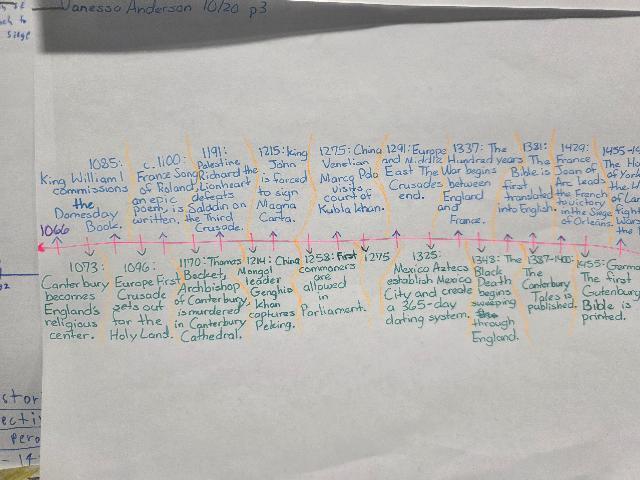 Vanessa Anderson 10/20 p3
siege
1066
1085:
King William I
commissions
the
Domesday
Book.
c. 1100:
France Song
of Roland,
an epic
poem, is
written.
1191:
Palestine
Richard the
Lionheart
defeats
Saladin on
the Third
Crusade.
1215: King
John
is forced
to sign
Magna
Carta.
1275: China
Venetian
Marco Polo
visits
court of
Kubla Khan.
1291: Europe
and Middle
East The
Crusades
end.
1337: The
Hundred years
War begins
between
England
and
France.
1381:
The
Bible is
first
translated
into English.
1429:
France
Joan of
Arc leads
the French
to victory
in the Siege
of Orleans.
1455-14
The Ho
of York
the
of Lan
Figh
Wars
the
1073:
Canterbury
becomes
England's
religious
center.
1096:
Europe First
Crusade
sets out
for the
Holy Land.
1170: Thomas
Becket,
Archbishop
of Canterbury,
is murdered
in Canterbury
Cathedral.
1214: China
Mongol
leader
Genghis
Khan
captures
Peking.
1258: First
commoners
are
allowed
in
Parliament.
1275
1325:
Mexico Aztecs
establish Mexico
City and create
a 365-day
dating system.
1343: The
Black
Death
begins
sweeping
through
England.
1387-1400:
The
Canterbury
Tales is
published.
1455: Germa
The first
Gutenburg
Bible is
printed.
stor
ecti
pero
- 14